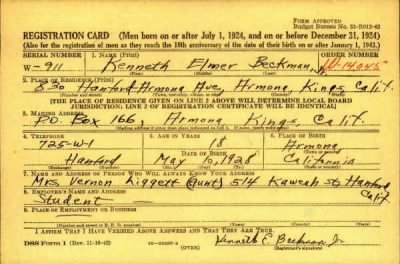 FORM APPROVED
Budget Bureau No. 33-R012-42
REGISTRATION CARD (Men born on or after July 1, 1924, and on or before December 31, 1924)
(Also for the registration of men as they reach the 18th anniversary of the date of their birth on or after January 1, 1943.)
SERIAL NUMBER 1. NAME (Print) ORDER NUMBER
W-911 Kenneth Elmer Beckman, W-14045
(First) (Middle) (Last)
2. PLACE OF RESIDENCE (Print)
830 Hanford Armona Ave, Armona, Kings, Calif.
[THE PLACE OF RESIDENCE GIVEN ON LINE 2 ABOVE WILL DETERMINE LOCAL BOARD
JURISDICTION; LINE 2 OF REGISTRATION CERTIFICATE WILL BE IDENTICAL]
3. MAILING ADDRESS
P.O. Box 166, Armona, Kings, Calif.
[Mailing address if other than place indicated on line 2. If same, insert word same]
4. TELEPHONE 5. AGE IN YEARS 6. PLACE OF BIRTH
725-W-1 18 Armona,
DATE OF BIRTH (Town or county)
Hanford May 10, 1928 California
(Exchange) (Number) (Mo.) (Day) (Yr.) (State or country)
7. NAME AND ADDRESS OF PERSON WHO WILL ALWAYS KNOW YOUR ADDRESS
Mrs. Vernon Liggett (Aunt) 514 Kaweah St Hanford
Calif
8. EMPLOYER'S NAME AND ADDRESS
Student
9. PLACE OF EMPLOYMENT OR BUSINESS
I AFFIRM THAT I HAVE VERIFIED ABOVE ANSWERS AND THAT THEY ARE TRUE.
DSS Form 1 (Rev. 11-16-42) (OVER) Kenneth E. Beckman Jr